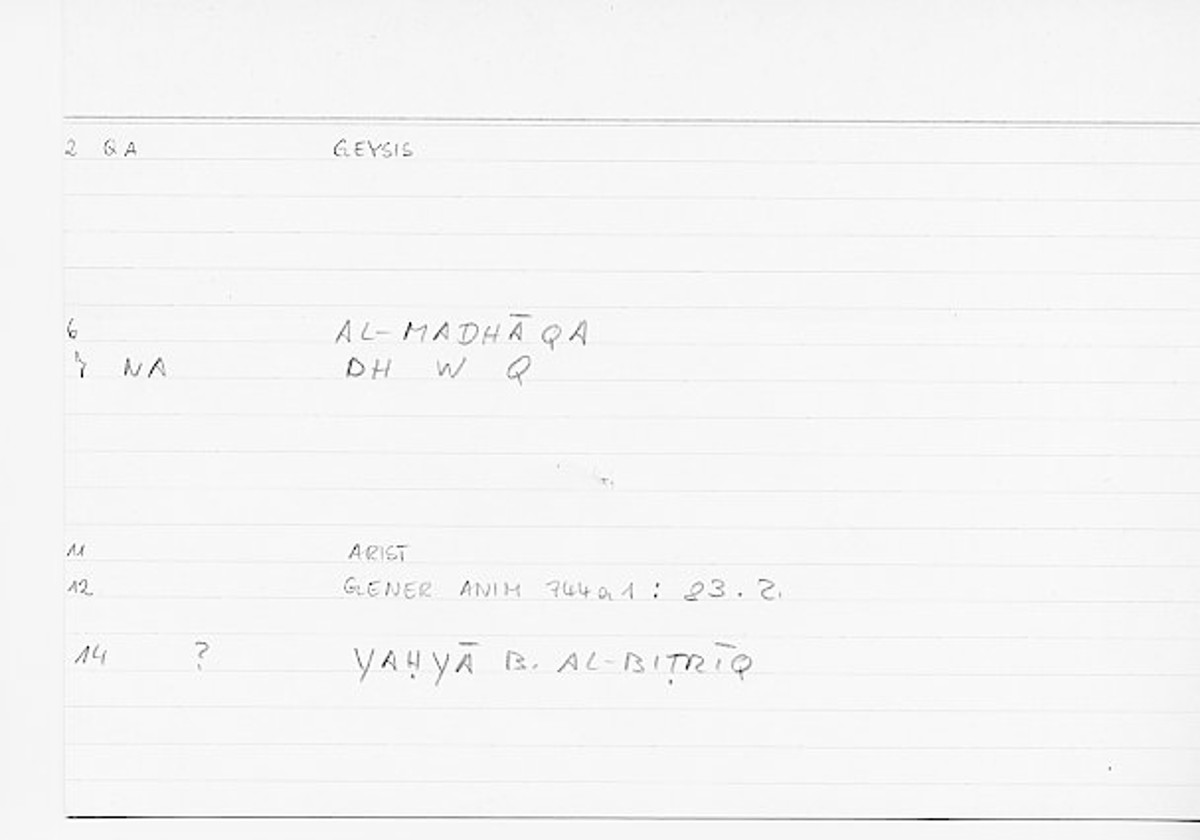 2 QA GEYSIS
6 AL-MADHĀQA
7 NA DH W Q
11 ARIST
12 GENER ANIM 744a1 : 83.2.
14 ? YAḤYĀ B. AL-BIṬRĪQ